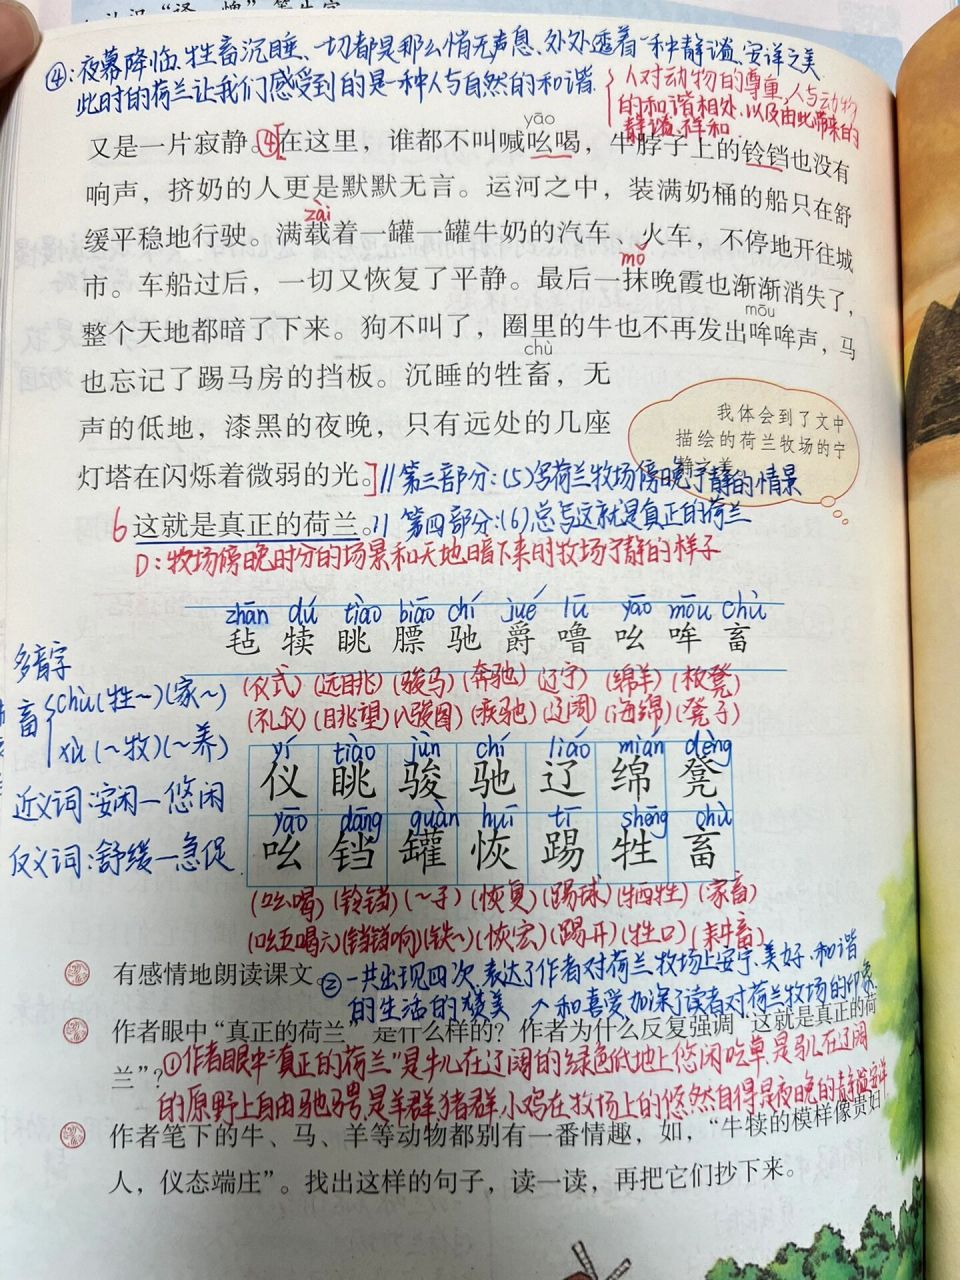 ④:夜幕降临、牲畜沉睡、一切都是那么悄无声息、处处透着一种静谧、安详之美
此时的荷兰让我们感受到的是一种人与自然的和谐.
人对动物的尊重,人与动物
的和谐相处、以及由此带来的
静谧、祥和.
yāo
又是一片寂静。④[在这里，谁都不叫喊吆喝，牛脖子上的铃铛也没有
响声，挤奶的人更是默默无言。运河之中，装满奶桶的船只在舒
zài
缓平稳地行驶。满载着一罐一罐牛奶的汽车、火车，不停地开往城
mǒ
市。车船过后，一切又恢复了平静。最后一抹晚霞也渐渐消失了，
整个天地都暗了下来。狗不叫了，圈里的牛也不再发出哞哞声，马
mōu
chù
也忘记了踢马房的挡板。沉睡的牲畜，无
声的低地，漆黑的夜晚，只有远处的几座
灯塔在闪烁着微弱的光。]
我体会到了文中
描绘的荷兰牧场的宁
静之美
//第三部分:(5)写荷兰牧场傍晚宁静的情景
6 这就是真正的荷兰。// 第四部分:(6)总写这就是真正的荷兰
D:牧场傍晚时分的场景和天地暗下来时牧场宁静的样子
zhān dú tiào biāo chí jué lū yāo mōu chù
毡 犊 眺 膘 驰 爵 噜 吆 哞 畜
多音字
畜{chù(牲~)(家~)
xù(~牧)(~养)
近义词:安闲—悠闲
反义词:舒缓—急促
(仪式)(远眺)(骏马)(奔驰)(辽宁)(绵羊)(板凳)
(礼仪)(眺望)(八骏图)(疾驰)(辽阔)(海绵)(凳子)
yí tiào jùn chí liáo mián dèng
仪 眺 骏 驰 辽 绵 凳
yāo dāng guàn huī tī shēng chù
吆 铛 罐 恢 踢 牲 畜
(吆喝)(铃铛)(~子)(恢复)(踢球)(牺牲)(家畜)
(吆五喝六)(铛铛响)(铁~)(恢宏)(踢开)(牲口)(耕畜)
有感情地朗读课文。
②一共出现四次,表达了作者对荷兰牧场上安宁、美好、和谐
的生活的赞美 和喜爱,加深了读者对荷兰牧场的印象
作者眼中“真正的荷兰”是什么样的？作者为什么反复强调“这就是真正的荷
兰”？
①作者眼中“真正的荷兰”是牛儿在辽阔的绿色低地上悠闲吃草,是马儿在辽阔
的原野上自由驰骋,是羊群、猪群、小鸡在牧场上的悠然自得是夜晚的静谧安详
作者笔下的牛、马、羊等动物都别有一番情趣，如，“牛犊的模样像贵妇
人，仪态端庄”。找出这样的句子，读一读，再把它们抄下来。